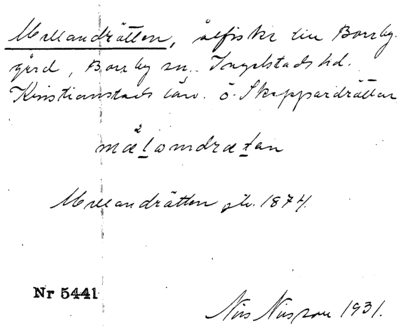 Mellandrätten, ålfiske till Borrby
gård, Borrby sn. Ingelstads hd.
Kristianstads län. ö. Skeppardrätten
2
mælamdrætan
Mellandrätten gk. 1874.
Nr 5441
Nils Nilsson 1931.